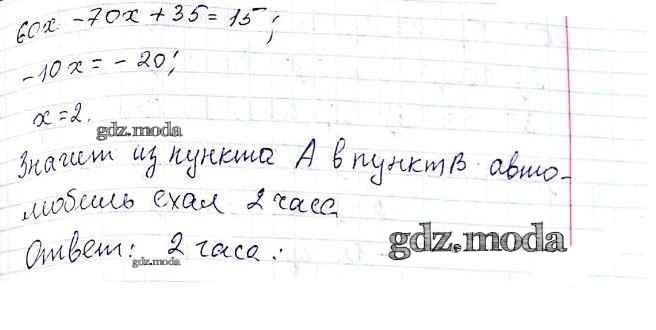 60x - 70x + 35 = 15;
-10x = -20;
x = 2.
gdz.moda
Значит из пункта A в пункт B авто-
мобиль ехал 2 часа
Ответ: 2 часа.
gdz.moda
gdz.moda